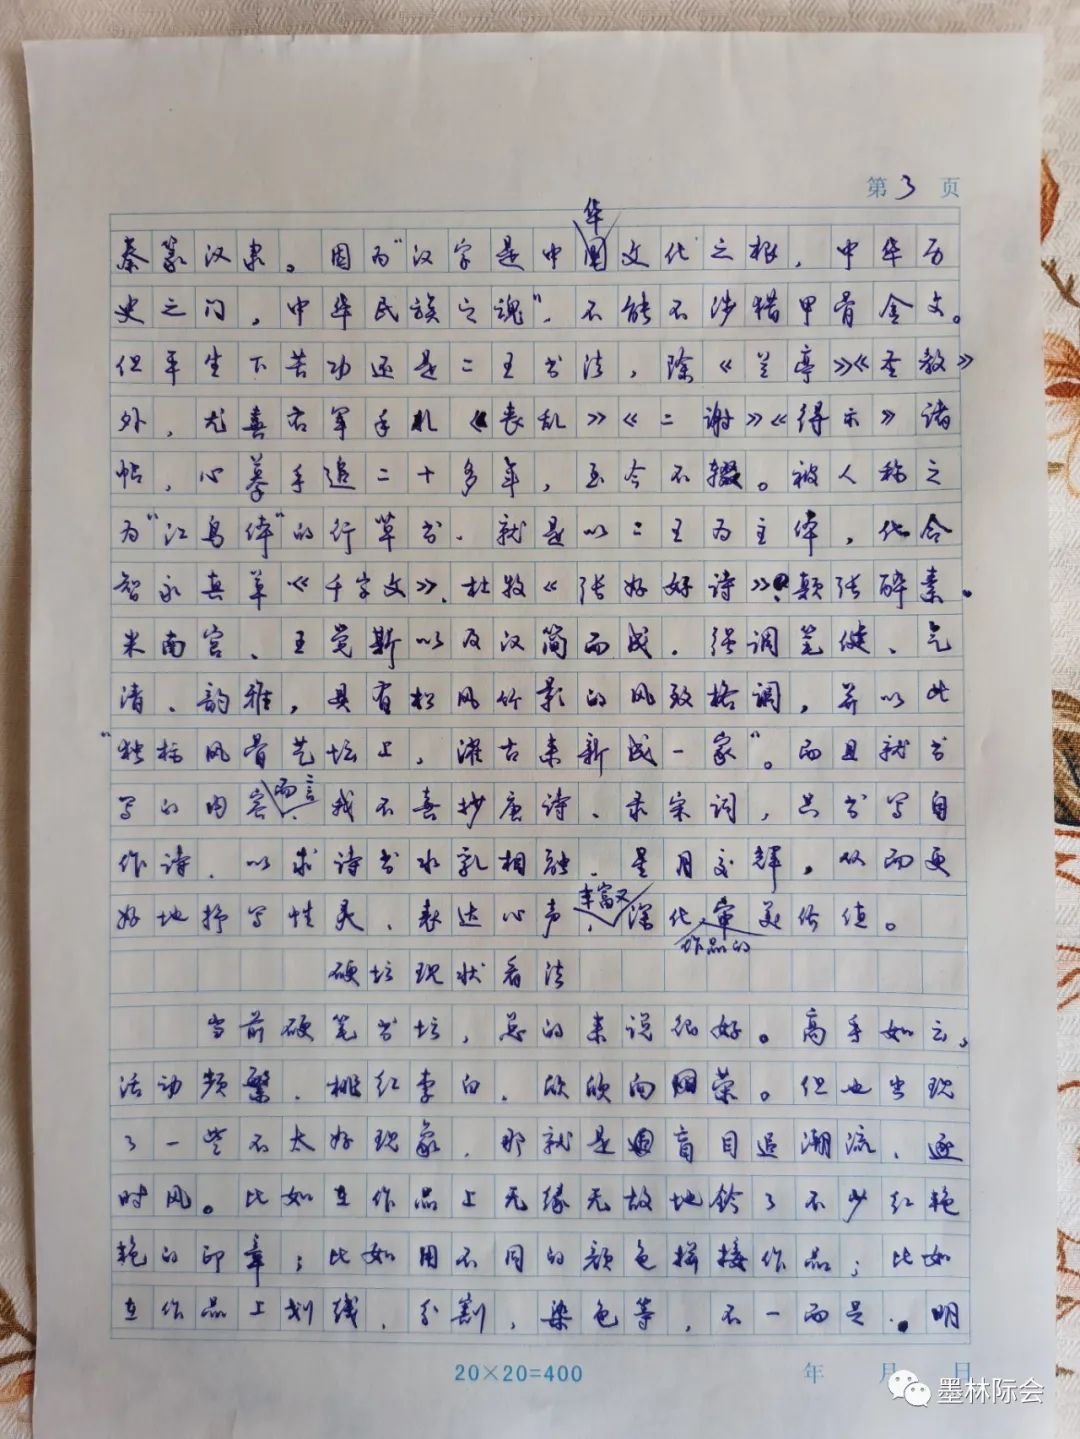 第3页
华
秦篆汉隶。因为"汉字是中国文化之根,中华历
史之门,中华民族之魂",不能不涉猎甲骨金文。
但平生下苦功还是二王书法,除《兰亭》《圣教》
外,尤喜右军手札《丧乱》《二谢》《得示》诸
帖,心摹手追二十多年,至今不辍。被人称之
为"江鸟体"的行草书,就是以二王为主体,化合
智永真草《千字文》、杜牧《张好好诗》、颠张醉素、
米南宫、王觉斯以及汉简而成。强调笔健、气
清、韵雅,具有松风竹影的风致格调,并以此
"独标风骨艺坛上,濯古来新成一家"。而且就书
写的内容而言,我不喜抄唐诗、录宋词,只书写自
作诗,以求诗书水乳相融、星月交辉,从而更
好地抒写性灵、表达心声,丰富又深化作品的审美价值。
硬坛现状看法
当前硬笔书坛,总的来说很好。高手如云,
活动频繁,桃红李白,欣欣向荣。但也出现
了一些不太好现象,那就是盲目追潮流、逐
时风。比如在作品上无缘无故地钤了不少红艳
艳的印章;比如用不同的颜色拼接作品;比如
在作品上划线,分割,染色等,不一而足。明
20×20=400 年 月 日
墨林际会